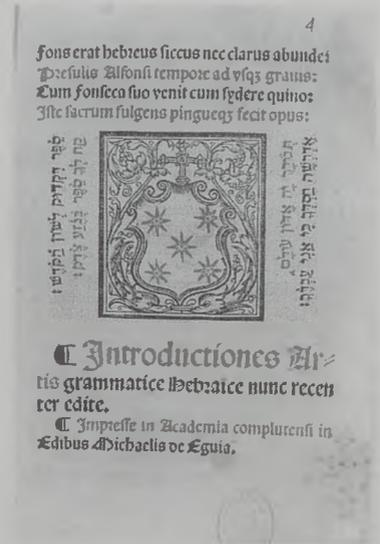 4
Fons erat hebreus siccus nec clarus abunde:
Presulis Alfonsi tempore ad vsqꝫ gratus:
Cum Fonseca suo venit cum sydere quino:
Iste sacrum fulgens pingueqꝫ fecit opus:
ספר דקדוק לשון הקדש:
קח לך ספר
¶ Introductiones Ar⸗
tis grammatice Hebraice nunc recen
ter edite.
¶ Impresse in Academia complutensi in
Edibus Michaelis de Eguia.